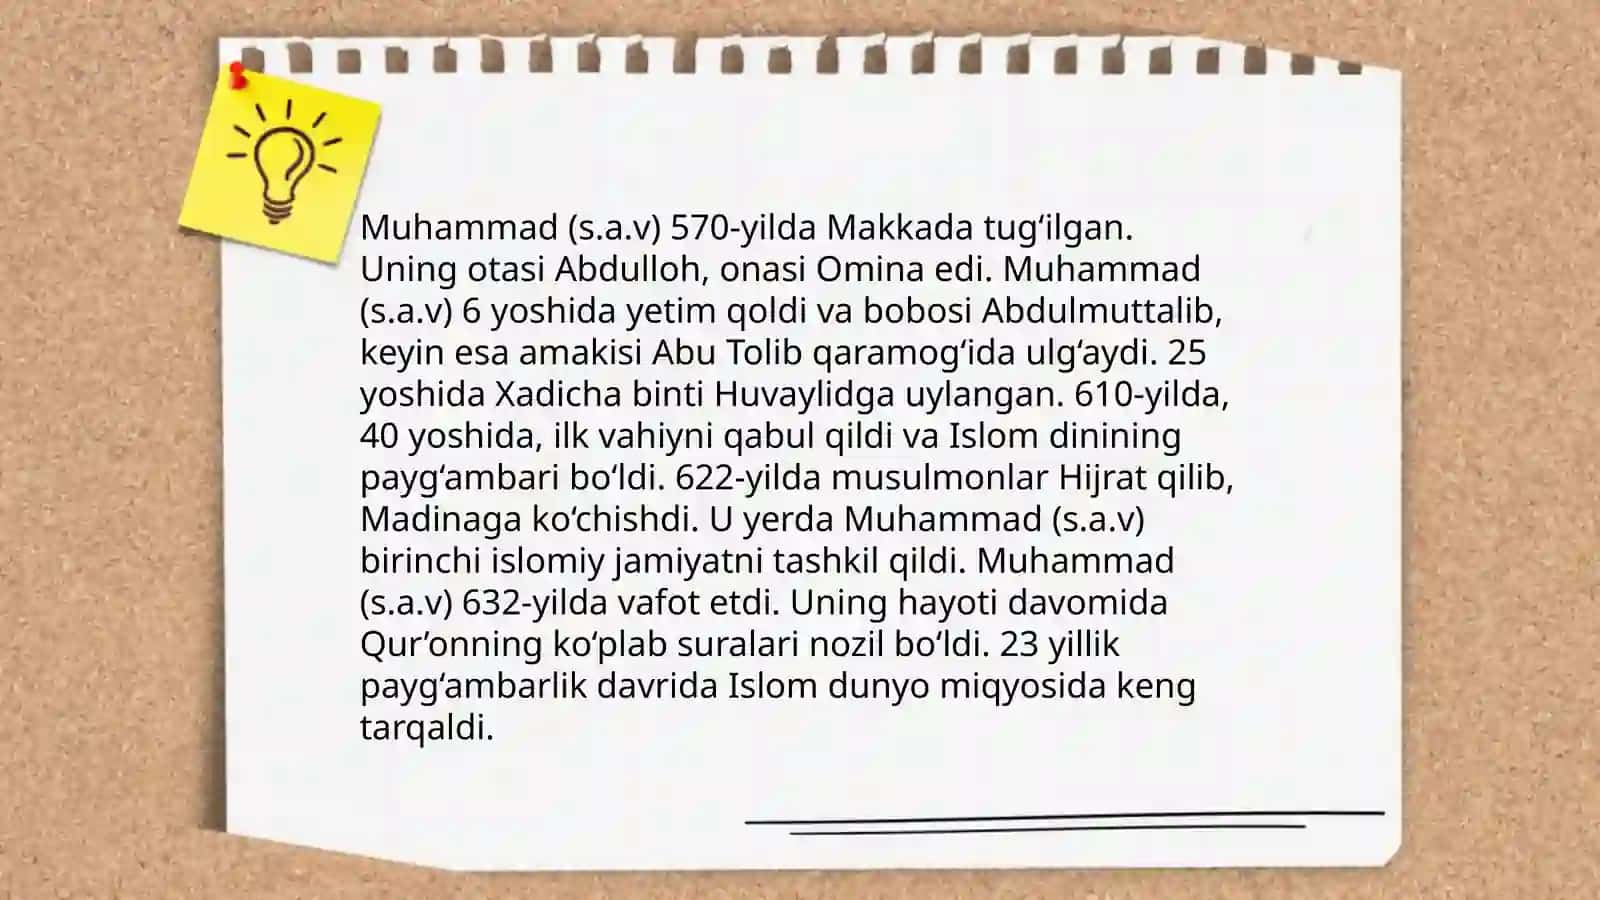 Muhammad (s.a.v) 570-yilda Makkada tug‘ilgan.
Uning otasi Abdulloh, onasi Omina edi. Muhammad
(s.a.v) 6 yoshida yetim qoldi va bobosi Abdulmuttalib,
keyin esa amakisi Abu Tolib qaramog‘ida ulg‘aydi. 25
yoshida Xadicha binti Huvaylidga uylangan. 610-yilda,
40 yoshida, ilk vahiyni qabul qildi va Islom dinining
payg‘ambari bo‘ldi. 622-yilda musulmonlar Hijrat qilib,
Madinaga ko‘chishdi. U yerda Muhammad (s.a.v)
birinchi islomiy jamiyatni tashkil qildi. Muhammad
(s.a.v) 632-yilda vafot etdi. Uning hayoti davomida
Qur’onning ko‘plab suralari nozil bo‘ldi. 23 yillik
payg‘ambarlik davrida Islom dunyo miqyosida keng
tarqaldi.